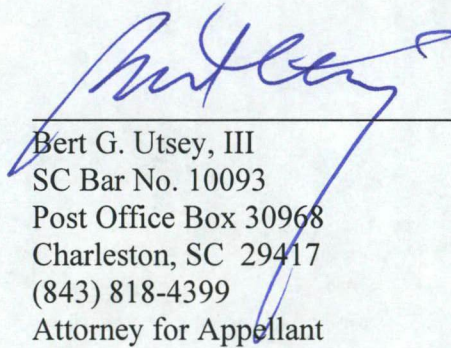 Bert G. Utsey, III
SC Bar No. 10093
Post Office Box 30968
Charleston, SC 29417
(843) 818-4399
Attorney for Appellant